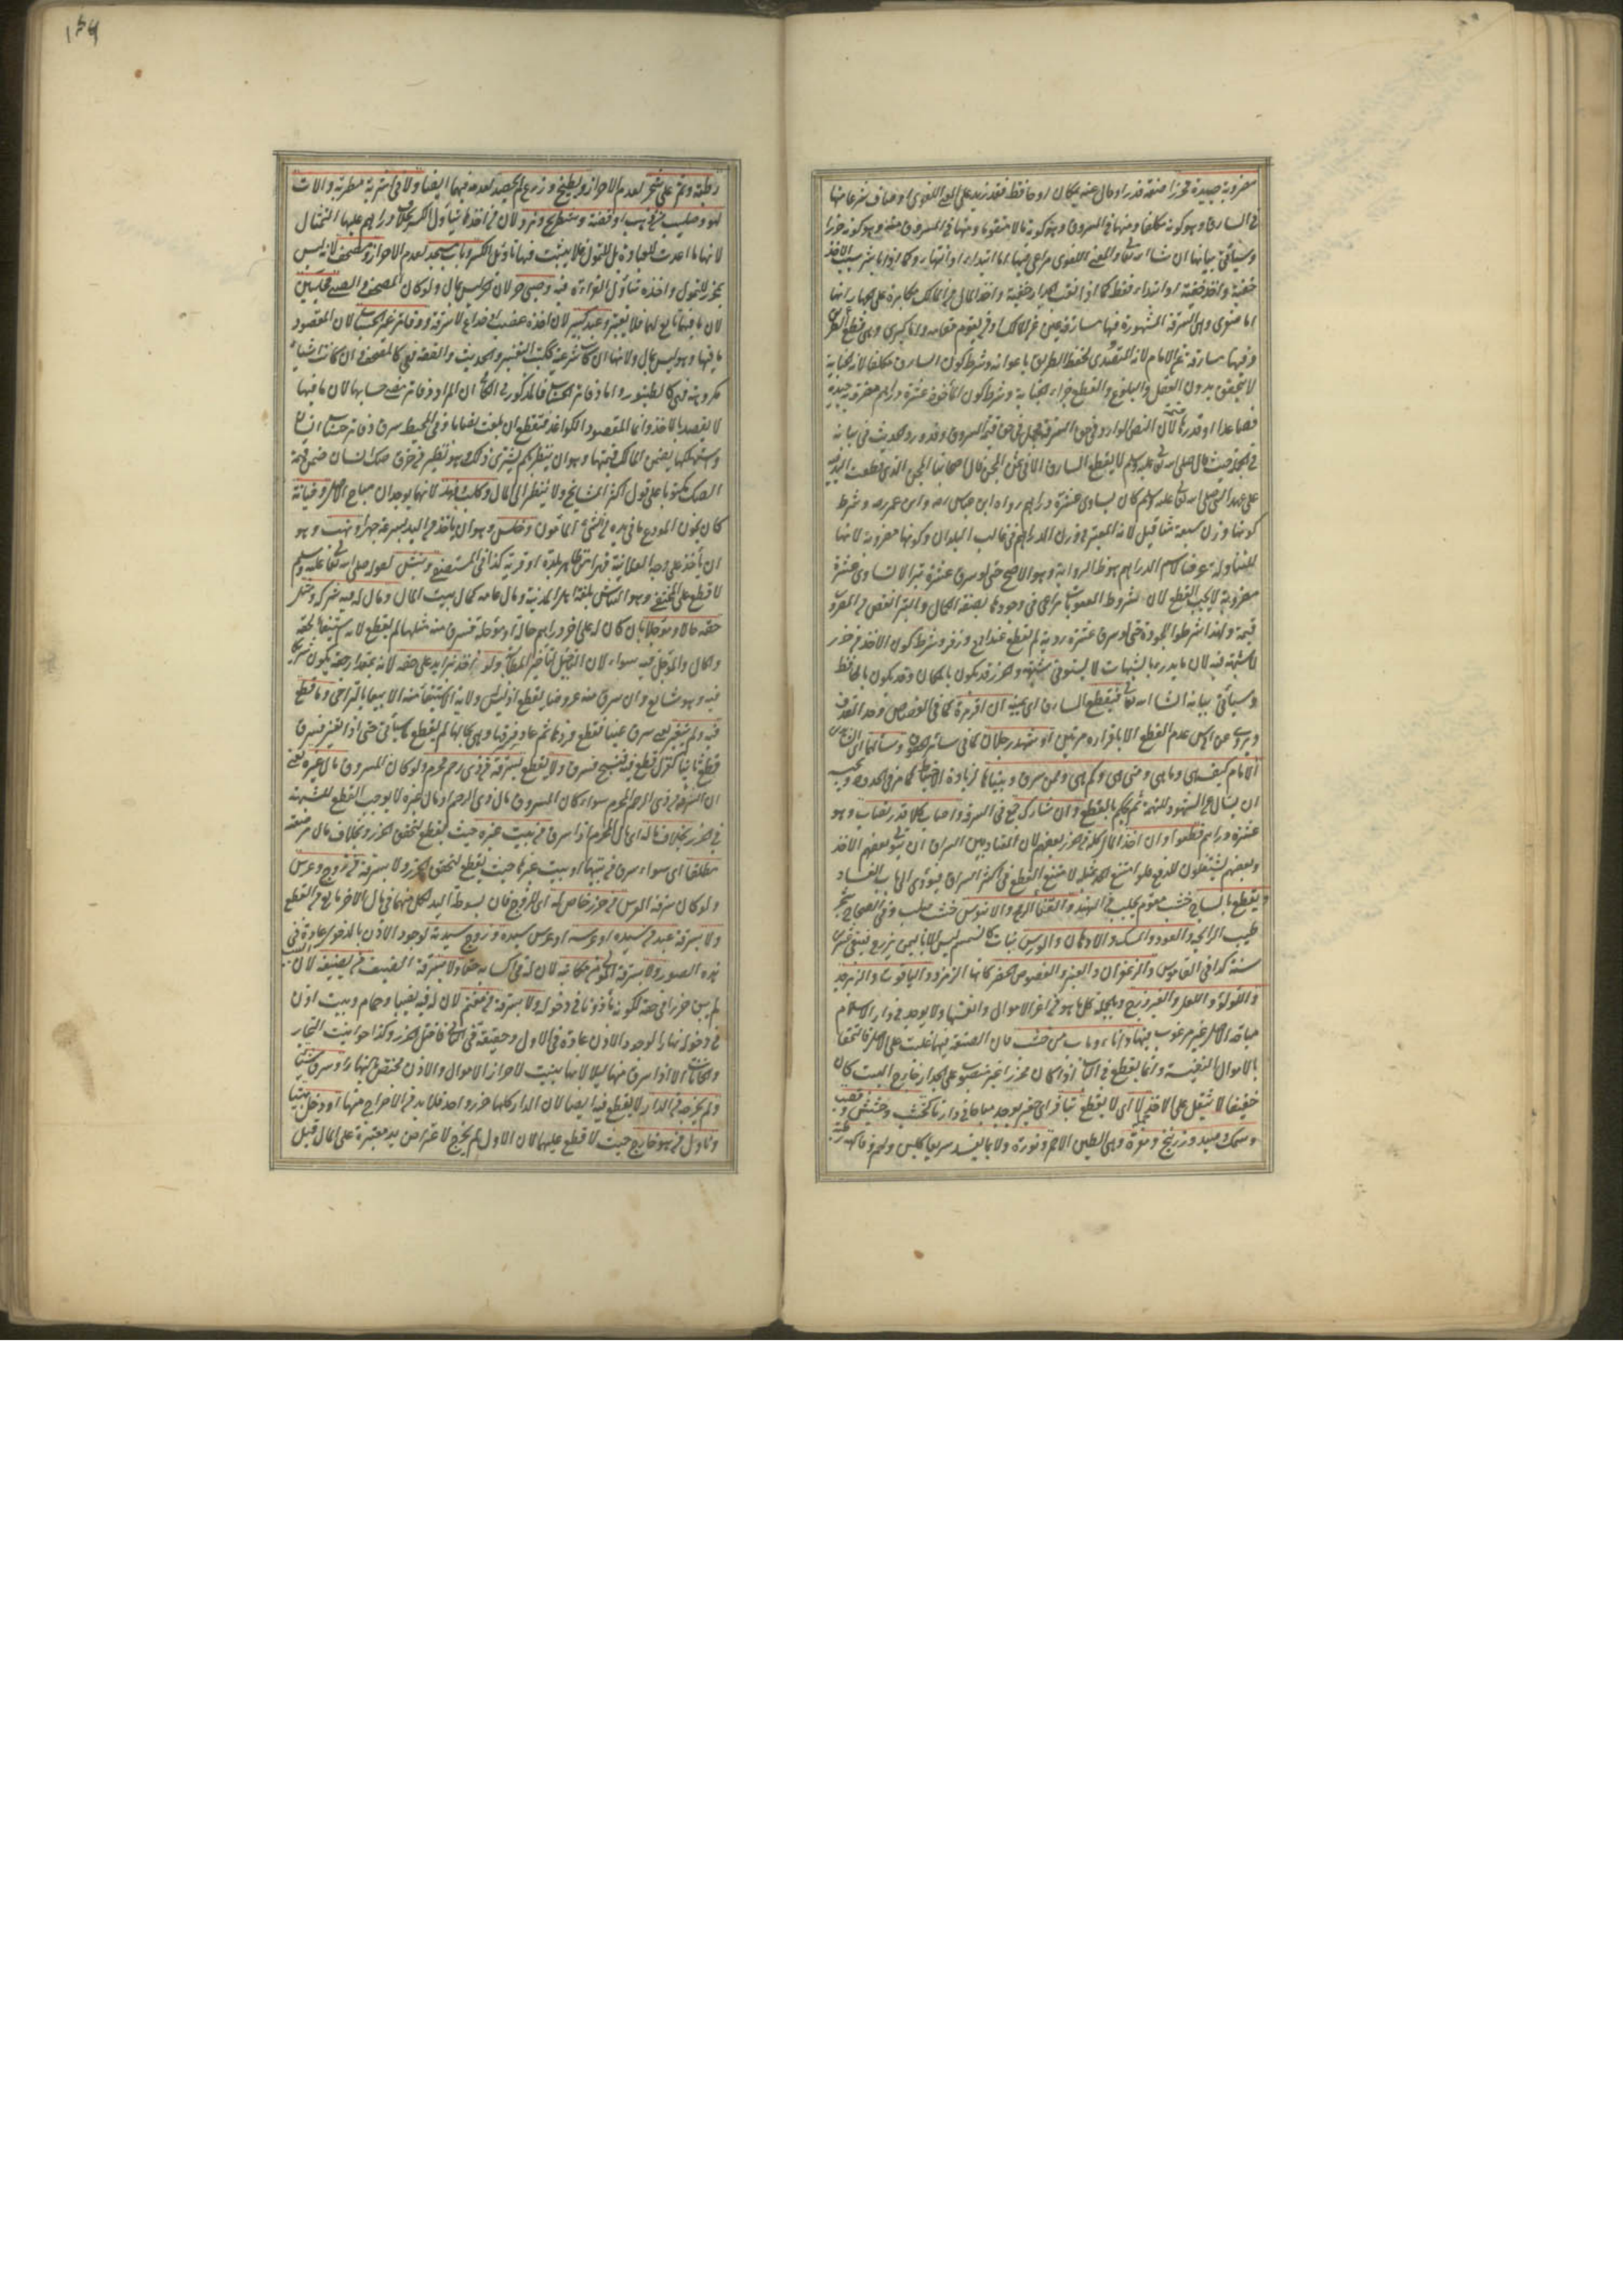 مضروبة جيدة محرزا صفة قدر او مال عنه بمكان او حافظ فقد زيد على المعنى اللغوي اوصاف شرعا منها
في السارق وهو كونه مكلفا ومنها في المسروق وهو كونه مالا متقوما ومنها في المسروق منه وهو كونه حرزا
وسيأتي بيانها ان شاء الله تعالى والمعنى اللغوي مراعى فيها اما ابتداء او انتهاء وكما اذا باشر سبب الاخذ
خفية واخذ خفية او ابتداء فقط كما اذا نقب الجدار خفية واخذ المال من المالك مكابرة على الجهار انها
اما صغرى وهي السرقة المشهورة فيها مسارقة عين المالك او من يقوم مقامه واما كبرى وهي قطع الطريق
وفيها مسارقة عين الامام لانه المتصدي لحفظ الطريق باعوانه وشرط كون السارق مكلفا لان الجناية
لا تتحقق بدون العقل والبلوغ والقطع جزاء الجناية وشرط كون المأخوذ عشرة دراهم مضروبة جيدة
فصاعدا او قدرها لان النص الوارد في حق السرقة مجمل في حق قيمة المسروق وقد ورد الحديث في بيانه
في الجملة حيث قال صلى الله تعالى عليه وسلم لا يقطع السارق الا في ثمن المجن قال اصحابنا المجن الذي قطعت اليد فيه
على عهد النبي صلى الله تعالى عليه وسلم كان يساوي عشرة دراهم رواه ابن عباس وابن عمر وشرط
كونها وزن سبعة مثاقيل لانه المعتبر في وزن الدراهم في غالب البلدان وكونها مضروبة لانها
المتناولة عرفا لاسم الدراهم هو ظاهر الرواية وهو الاصح حتى لو سرق عشرة تبرا لا تساوي عشرة
مضروبة لا يجب القطع لان شروط العقوبات يراعى في وجودها بصفة الكمال والتبر انقص من المضروب
قيمة ولهذا شرطوا الجودة حتى لو سرق عشرة ردية لم يقطع عند ابي وزفر وشرط كون الاخذ من حرز
لا شبهة فيه لان ما يدرأ بالشبهات لا يستوفى بشبهة والحرز قد يكون بالمكان وقد يكون بالحافظ
وسيأتي بيانه ان شاء الله تعالى فيقطع السارق اي يمينه ان اقر مرة كما في القصاص وحد القذف
وروي عن ابي يوسف عدم القطع الا باقراره مرتين او شهد رجلان كما في سائر الحقوق وسألهما اي الشاهدين
الامام كيف هي وما هي ومتى هي وكم هي وممن سرق وبيناها لزيادة الاحتياط كما مر في الحدود ويجب
ان يسأل عن الشهود للتهمة ثم يحكم بالقطع وان شارك جمع في السرقة واصاب كلا قدر نصاب وهو
عشرة دراهم قطعوا وان اخذ المال كله من الحرز بعضهم لان المعتاد بين السراق ان يتولى بعضهم الاخذ
وبعضهم يشتغلون للدفع فلو امتنع الحد بمثله لامتنع القطع في اكثر السراق فيؤدي الى باب الفساد
ويقطع بالساج خشب مقوم يجلب من الهند والقنا الرمح والابنوس خشب صلب وفي الصحاح شجر
طيب الرائحة والعود والمسك والادهان والورس نبات كالسمسم ليس الا باليمن يزرع فيبقى عشرين
سنة كذا في القاموس والزعفران والعنبر والفصوص الخضر كانها الزمرد والياقوت والزبرجد
واللؤلؤ واللعل والفيروزج وبالجملة كل ما هو من اعز الاموال وانفسها ولا يوجد في دار الاسلام
مباح الاصل غير مرغوب فيها واناء وباب من خشب فان الصنعة فيهما غلبت على الاصل فالتحقا
بالاموال النفيسة وانما يقطع في الباب اذا كان محرزا غير منصوب على الجدار خارج البيت كان
خفيفا لا يثقل على الاخذ لا اي لا يقطع بتافه اي حقير يوجد مباحا في دارنا كخشب وحشيش وقصب
وسمك وصيد وزرنيخ ومغرة وهي الطين الاحمر ونورة ولا بما يفسد سريعا كلبن ولحم وفاكهة رطبة
١٣٩
رطبة وثمر على شجر لعدم الاحراز وبطيخ وزرع لم يحصد لعدمه فيهما ايضا ولا في اشربة مطربة والات
لهو وصليب من ذهب او فضة وشطرنج ونرد لان من اخذها يتأول الكسر بخلاف دراهم عليها التمثال
لانها ما اعدت للعبادة بل للتمول فلا يثبت فيها تأويل الكسر وباب مسجد لعدم الاحراز ومصحف لانه ليس
بمحرز للتمول واخذه يتأول القراءة فيه وصبي حر لان الحر ليس بمال ولو كان المصحف والصبي محليين
لان ما فيهما تابع لهما فلا يعتبر وعبد كبير لان اخذه غصب او خداع لا سرقة ودفاتر غير الحساب لان المقصود
ما فيها وهو ليس بمال ولانها ان كانت شرعية ككتب التفسير والحديث والفقه فهي كالمصحف وان كانت اشياء
مكروهة فهي كالطنبور واما دفاتر الحساب فالمذكور في الكافي ان المراد دفاتر مضى حسابها لان ما فيها
لا يقصد بالاخذ وانما المقصود الكواغد فيقطع ان بلغت نصابا وفي المحيط سرق دفاتر حساب انسان
واستهلكها يضمن المالك قيمتها وهو ان ينظر بكم يشترى ذلك وهو نظير من خرق صك انسان ضمن قيمة
الصك مكتوبا على قول اكثر المشايخ ولا ينظر الى المال وكلب وفهد لانهما يوجدان مباح الاصل وخيانة
كان يخون المودع ما في يده من الشيء المأمون وخلس وهو ان يأخذ من اليد بسرعة جهرا ونهب وهو
ان يأخذ على وجه العلانية قهرا من ظاهر بلدة او قرية كذا في المستصفى ونبش لقوله صلى الله تعالى عليه وسلم
لا قطع على المختفي وهو النباش بلغة اهل المدينة ومال عامة كمال بيت المال ومال له فيه شركة ومثل
حقه حالا ومؤجلا بان كان له على اخر دراهم حالة او مؤجلة فسرق منه مثلها لم يقطع لانه استيفاء لحقه
والحال والمؤجل فيه سواء لان التأجيل لتأخير المطالبة ولو اخذ بزائد على حقه لانه بمقدار حقه يكون شريكا
فيه وهو شائع وان سرق منه عروضا يقطع اذ ليس له ولاية الاستيفاء منه الا بيعا بالتراضي وما قطع
فيه ولم يتغير يعني سرق عينا فقطع فردها ثم عاد فسرقها وهي بحالها لم يقطع كما سيأتي حتى اذا تغير فسرق
قطع ثانيا كغزل قطع فيه فنسج فسرق ولا يقطع بسرقة من ذي رحم محرم ولو كان المسروق مال غيره يعني
ان السرقة من ذي الرحم المحرم سواء كان المسروق مال ذي الرحم او مال غيره لا يوجب القطع للشبهة
في الحرز بخلاف ماله اي مال المحرم اذا سرق من بيت غيره حيث يقطع لتحقق الحرز وبخلاف مال مرضعته
مطلقا اي سواء سرق من بيتها او بيت غيرها حيث يقطع لتحقق الحرز ولا بسرقة من زوج وعرس
ولو كان سرقة العرس من حرز خاص له اي للزوج فان بسوطة اليد لكل منهما في مال الاخر مانع من القطع
ولا بسرقة عبد من سيده او عرسه او عرس سيده وزوج سيدته لوجود الاذن بالدخول عادة في
هذه الصور ولا بسرقة المولى من مكاتبه لان له في اكسابه حقا ولا بسرقة الضيف من مضيفه لان البيت
لم يبق حرزا في حقه لكونه مأذونا في دخوله ولا بسرقة من مغنم لان له فيه نصيبا وحمام وبيت اذن
في دخوله نهارا لوجود الاذن عادة في الاول وحقيقة في الثاني فاختل الحرز وكذا حوانيت التجار
والخانات الا اذا سرق منها ليلا لانها بنيت لاحراز الاموال والاذن مختص بالنهار او سرق شيئا
ولم يخرجه من الدار لا يقطع فيه ايضا لان الدار كلها حرز واحد فلا بد من الاخراج منها او دخل بيتا
وناول من هو خارج حيث لا قطع عليهما لان الاول لم يخرج لاعتراض يد معتبرة على المال قبل